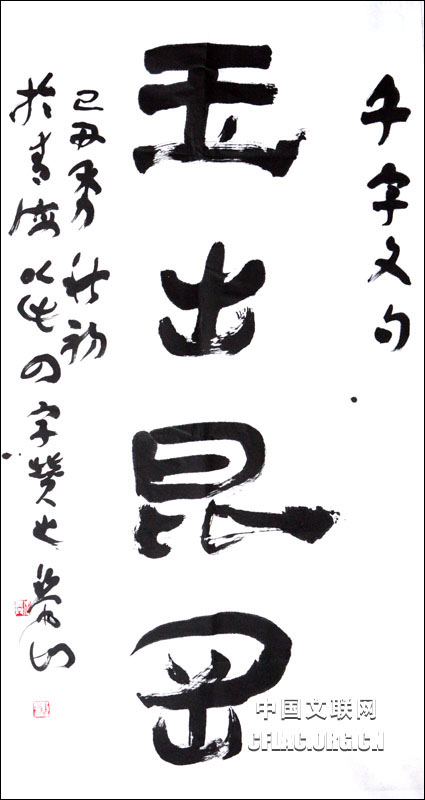 千字文句
玉出昆岡
己丑秋初
於青海以此四字贊之
中国文联网
CFLAC.ORG.CN